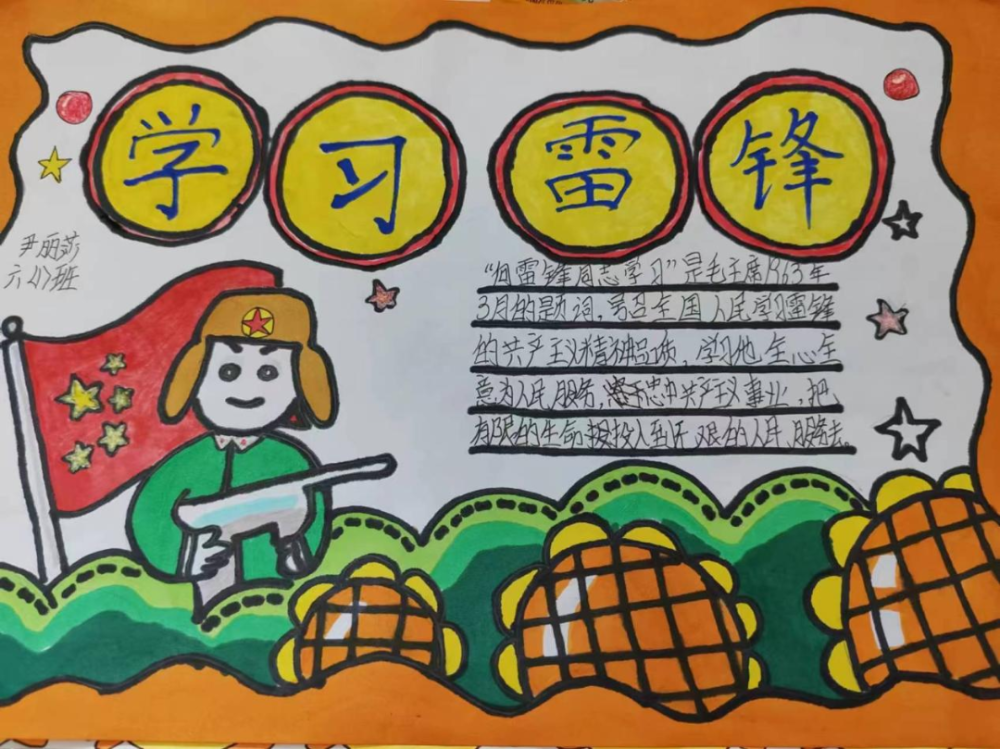 学习雷锋
尹丽莎
六(4)班
“向雷锋同志学习”是毛主席1963年
3月的题词，号召全国人民学习雷锋
的共产主义精神品质，学习他全心全
意为人民服务，忠中共产主义事业，把
有限的生命投入到无限的人民服务去。